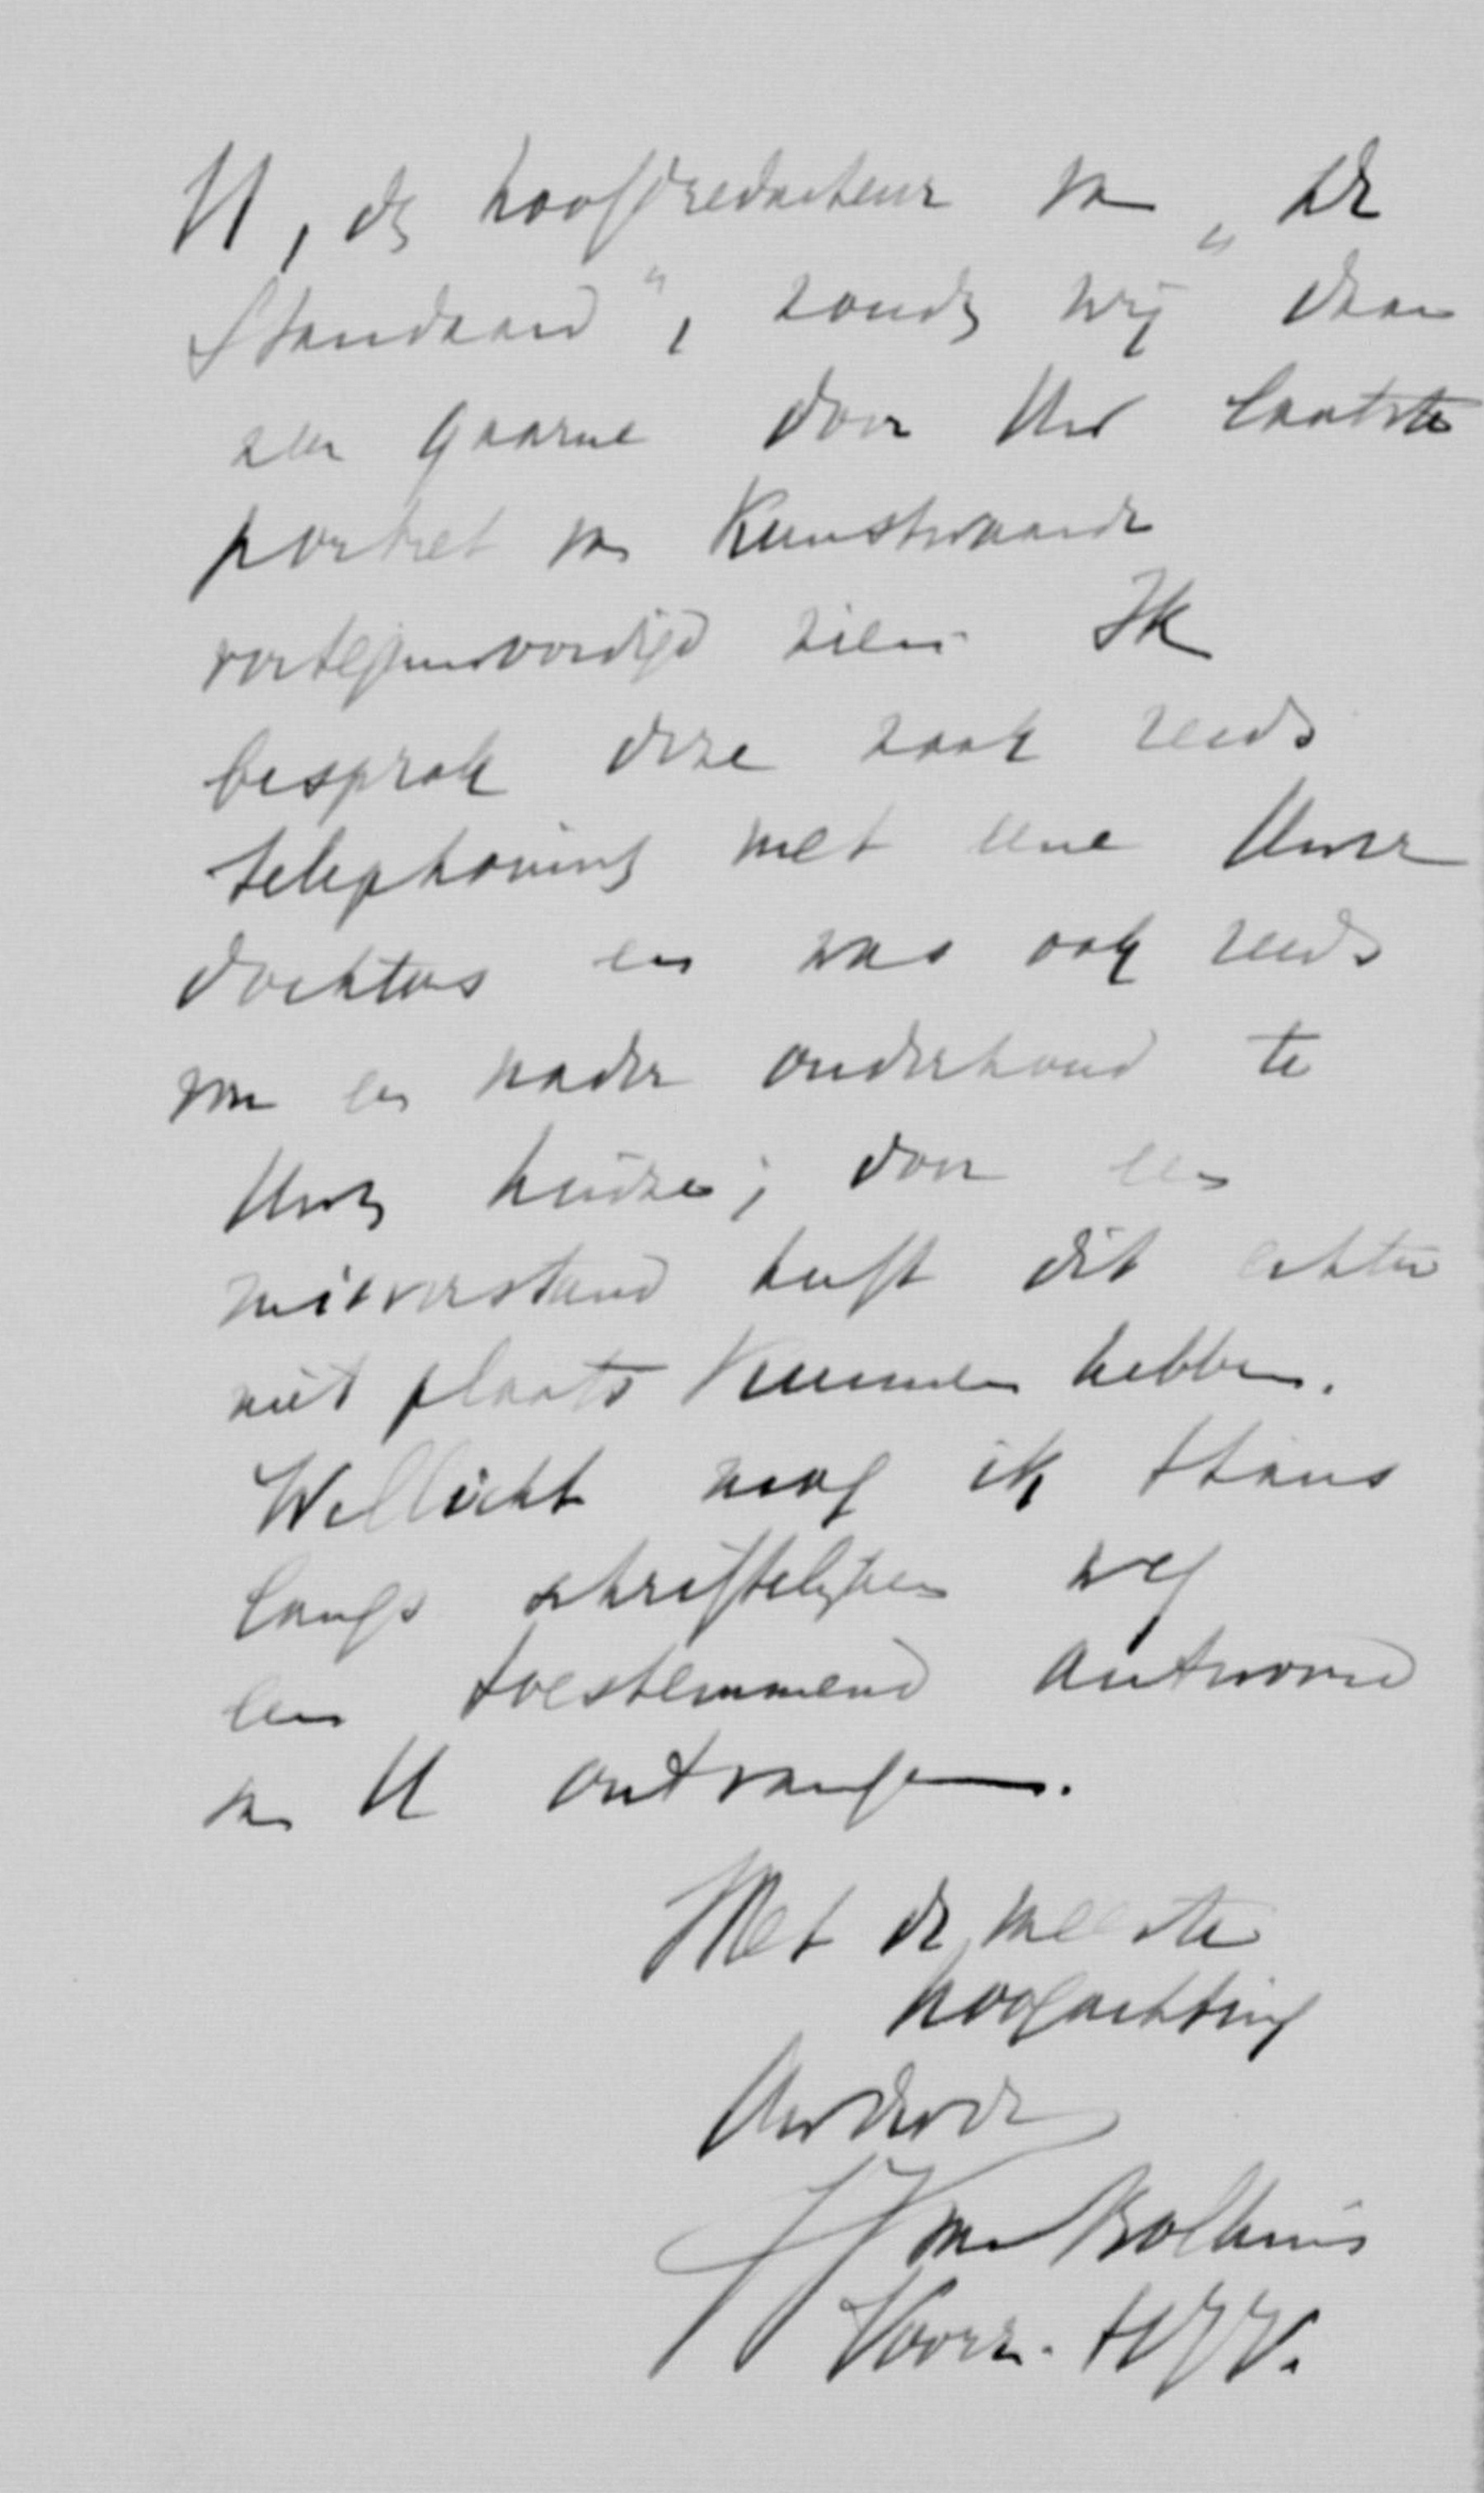 U, de hoofdredacteur van „De
Standaard", zouden wij daar
zeer gaarne door Uw laatste
portret van Kunstwaarde
vertegenwoordigd zien. Ik
besprak deze zaak reeds
telephonisch met eene Uwer
dochters en was ook reeds
voor een nader onderhoud te
Uwen huize; door een
misverstand heeft dit echter
niet plaats kunnen hebben.
Wellicht mag ik thans
langs schriftelijken weg
een toestemmend antwoord
van U ontvangen.
Met de meeste
hoogachting
Uw dw dr
van Bolhuis
Voorz.